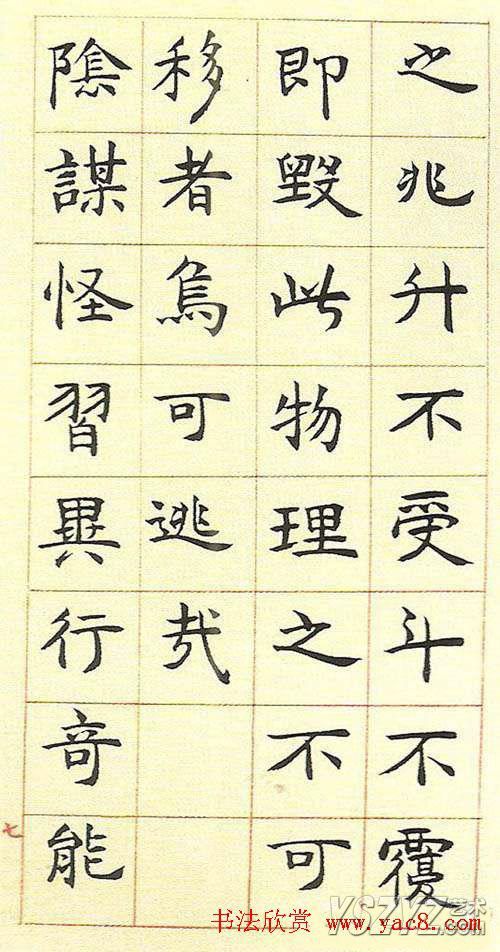 之兆升不受斗不覆
即毀此物理之不可
移者烏可逃哉
隂謀怪習異行竒能
七
书法欣赏 www.yac8.com